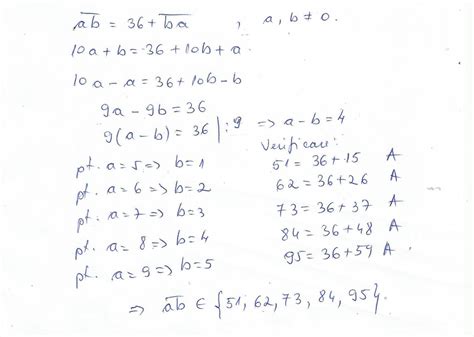 ab̅ = 36 + b̅a̅ , a, b ≠ 0.
10a + b = 36 + 10b + a
10a - a = 36 + 10b - b
9a - 9b = 36
9(a - b) = 36 | : 9 => a - b = 4
Verificare:
pt. a = 5 => b = 1
51 = 36 + 15 A
pt. a = 6 => b = 2
62 = 36 + 26 A
pt. a = 7 => b = 3
73 = 36 + 37 A
pt. a = 8 => b = 4
84 = 36 + 48 A
pt. a = 9 => b = 5
95 = 36 + 59 A
=> a̅b̅ ∈ {51, 62, 73, 84, 95}.